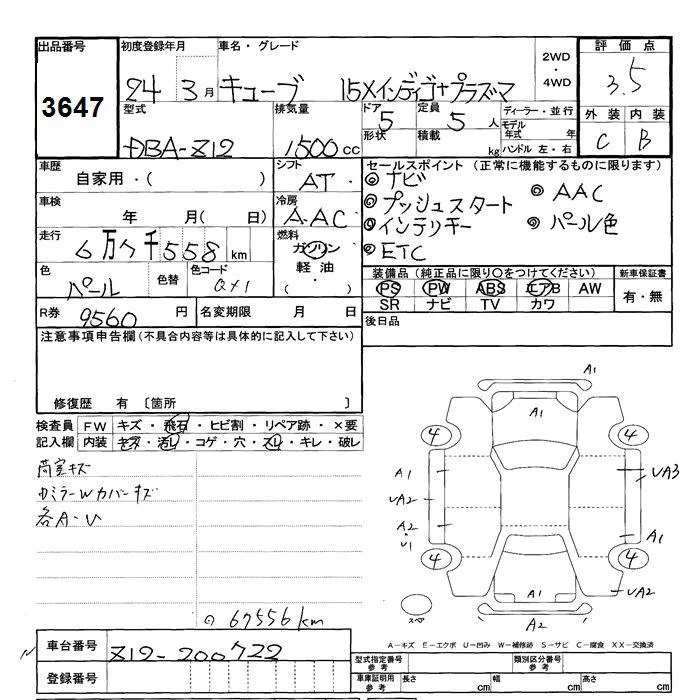 出品番号 初度登録年月 車名・グレード 2WD・4WD 評価点
3647 24 3月 キューブ 15Xインディゴ+プラズマ 3.5
型式 排気量 ドア 5 定員 5人 ディーラー・並行 外装 内装
DBA-Z12 1500cc 形状 積載 kg モデル年式 年 ハンドル 左・右 C B
車歴 シフト セールスポイント(正常に機能するものに限ります)
自家用・( ) AT ◎ナビ ◎AAC
車検 冷房 ◎プッシュスタート
年 月( 日) AAC ◎インテリキー ◎パール色
走行 燃料 ◎ETC
6万7千558km ガソリン
色 色替 色コード 軽油 装備品(純正品に限り○をつけてください) 新車保証書
パール QX1 ・( ) PS PW ABS エアB AW 有・無
SR ナビ TV カワ
R券 9560円 名変期限 月 日 後日品
注意事項申告欄(不具合内容等は具体的に記入して下さい)
修復歴 有 〔箇所 〕
検査員 FW キズ・飛石・ヒビ割・リペア跡・×要
記入欄 内装 キズ・汚レ・コゲ・穴・スレ・キレ・破レ
荷室キズ
カミラーWカバーキズ
各A・U
67556km
A1
A1
4 4
A1 UA3
UA2
A2・U1 A1
4 4
UA2
A1
スペア A2
A-キズ E-エクボ U-凹み W-補修跡 S-サビ C-腐食 XX-交換済
車台番号 Z12-200722
型式指定番号 参考 類別区分番号 参考
登録番号
車庫証明用 参考 長さ cm 幅 cm 高さ cm